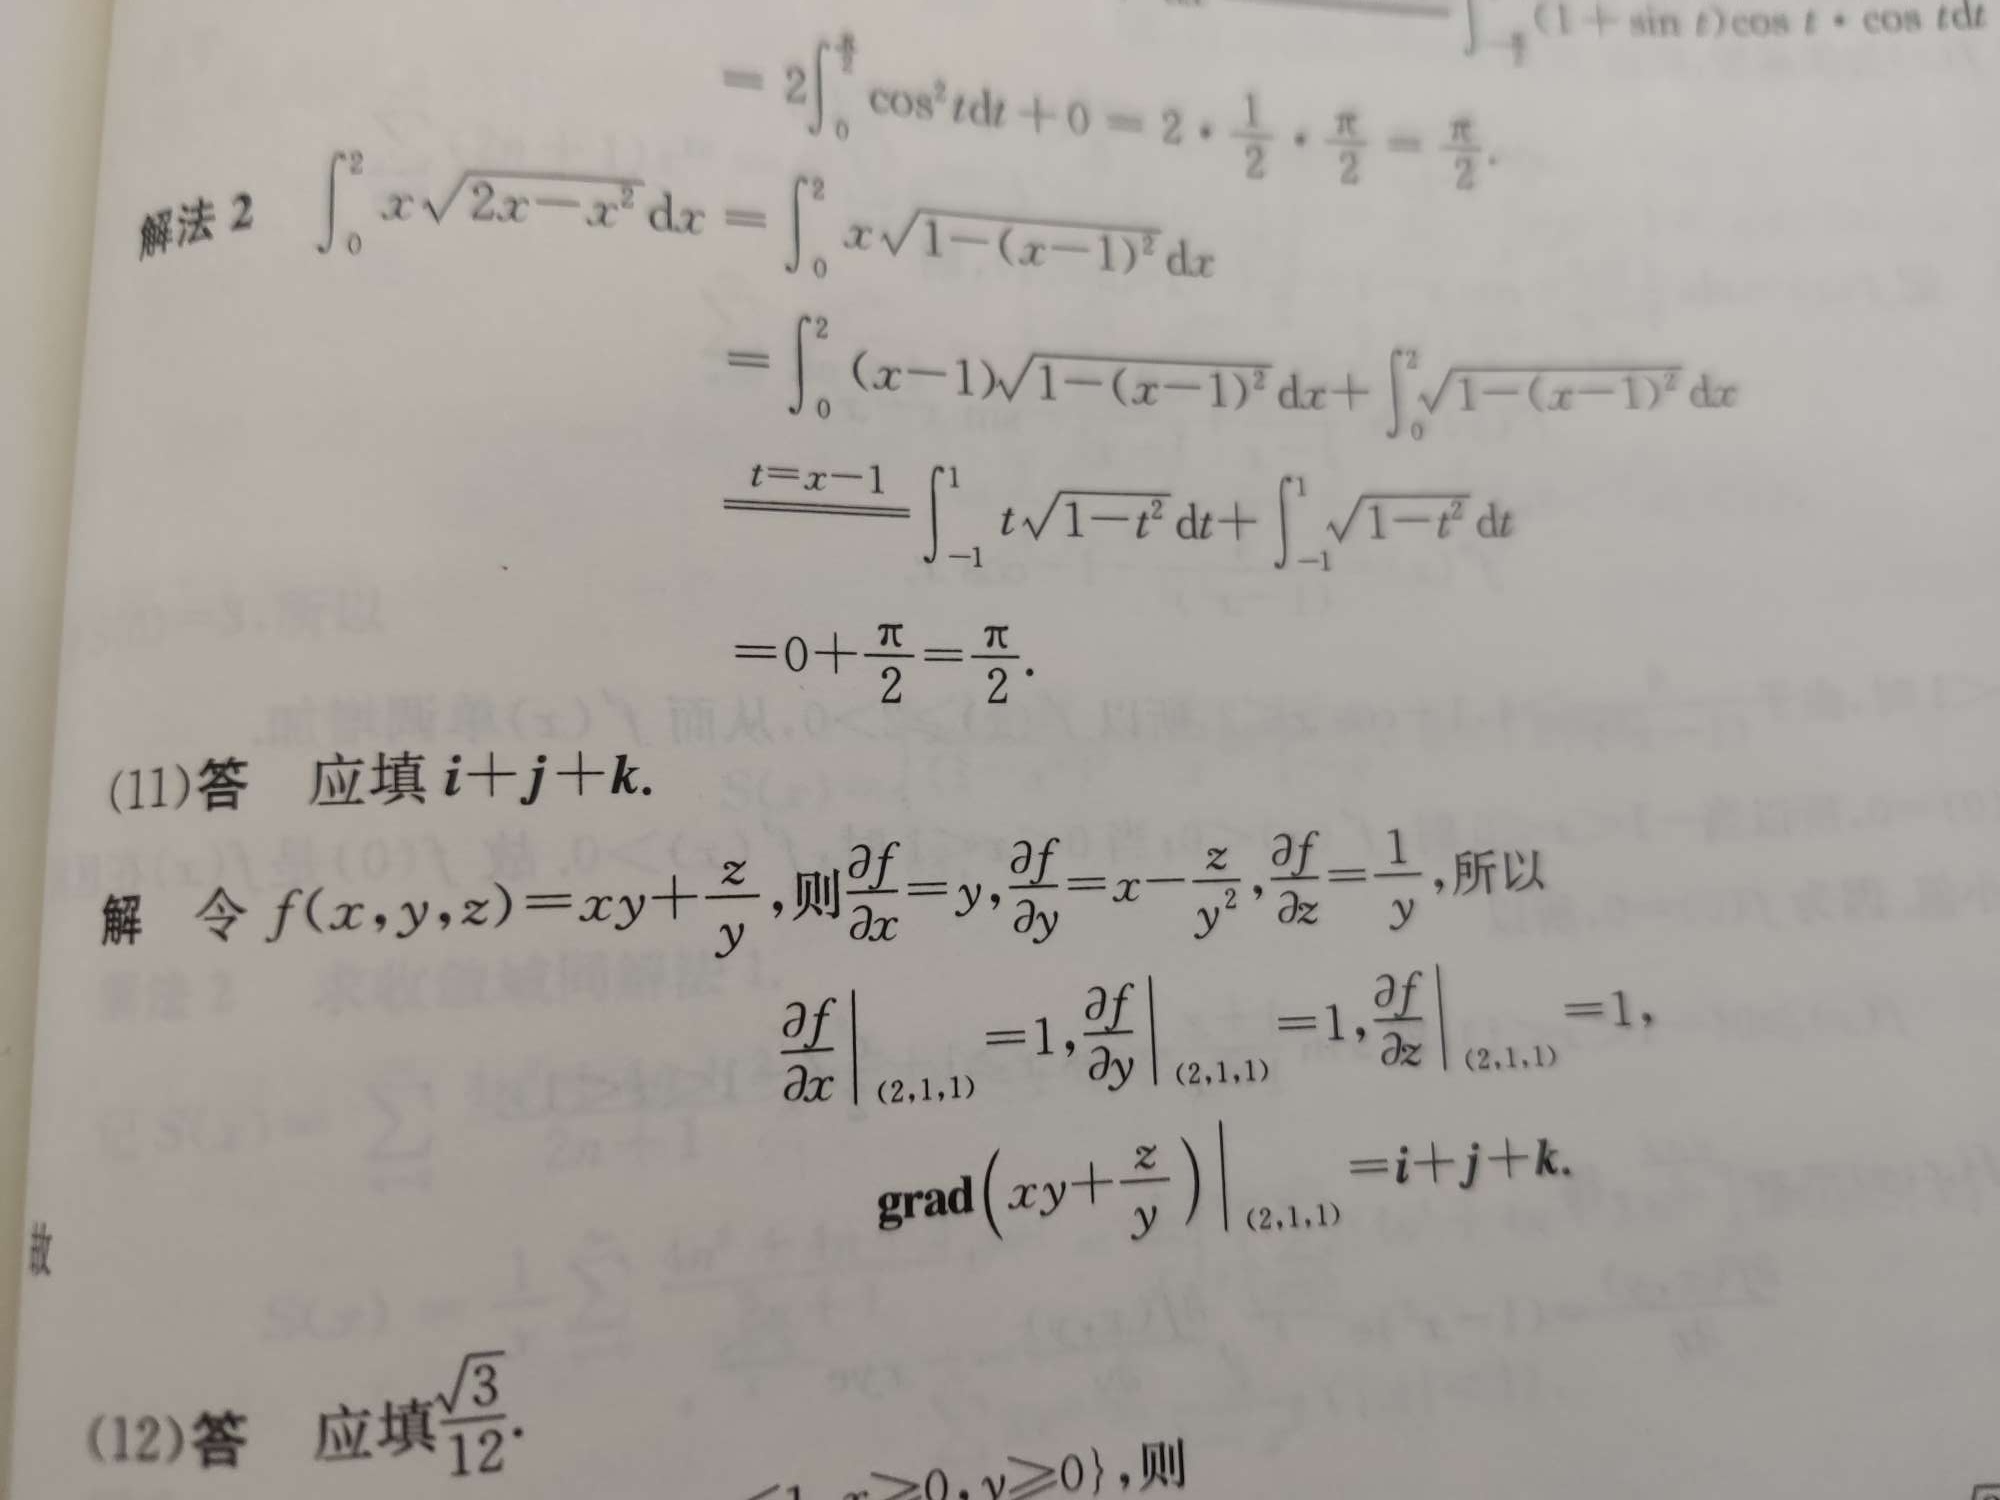 ∫_{-π/2} (1+sin t)cos t·cos tdt
=2∫_0^{π/2} cos²tdt+0=2·1/2·π/2=π/2.
解法2 ∫_0^2 x√(2x-x²)dx=∫_0^2 x√(1-(x-1)²)dx
=∫_0^2 (x-1)√(1-(x-1)²)dx+∫_0^2 √(1-(x-1)²)dx
t=x-1 ∫_{-1}^1 t√(1-t²)dt+∫_{-1}^1 √(1-t²)dt
=0+π/2=π/2.
(11)答 应填 i+j+k.
解 令 f(x,y,z)=xy+z/y,则∂f/∂x=y,∂f/∂y=x-z/y²,∂f/∂z=1/y,所以
∂f/∂x|(2,1,1)=1,∂f/∂y|(2,1,1)=1,∂f/∂z|(2,1,1)=1,
故 grad(xy+z/y)|(2,1,1)=i+j+k.
(12)答 应填√3/12.
x≥0,y≥0},则